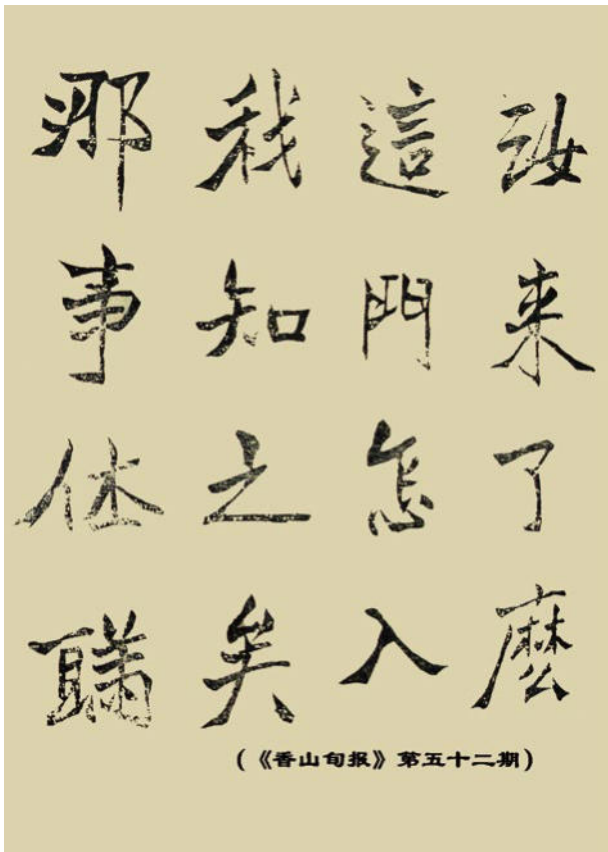 汝来了麽
這門怎入
我知之矣
那事休瞞
(《香山旬报》第五十二期)